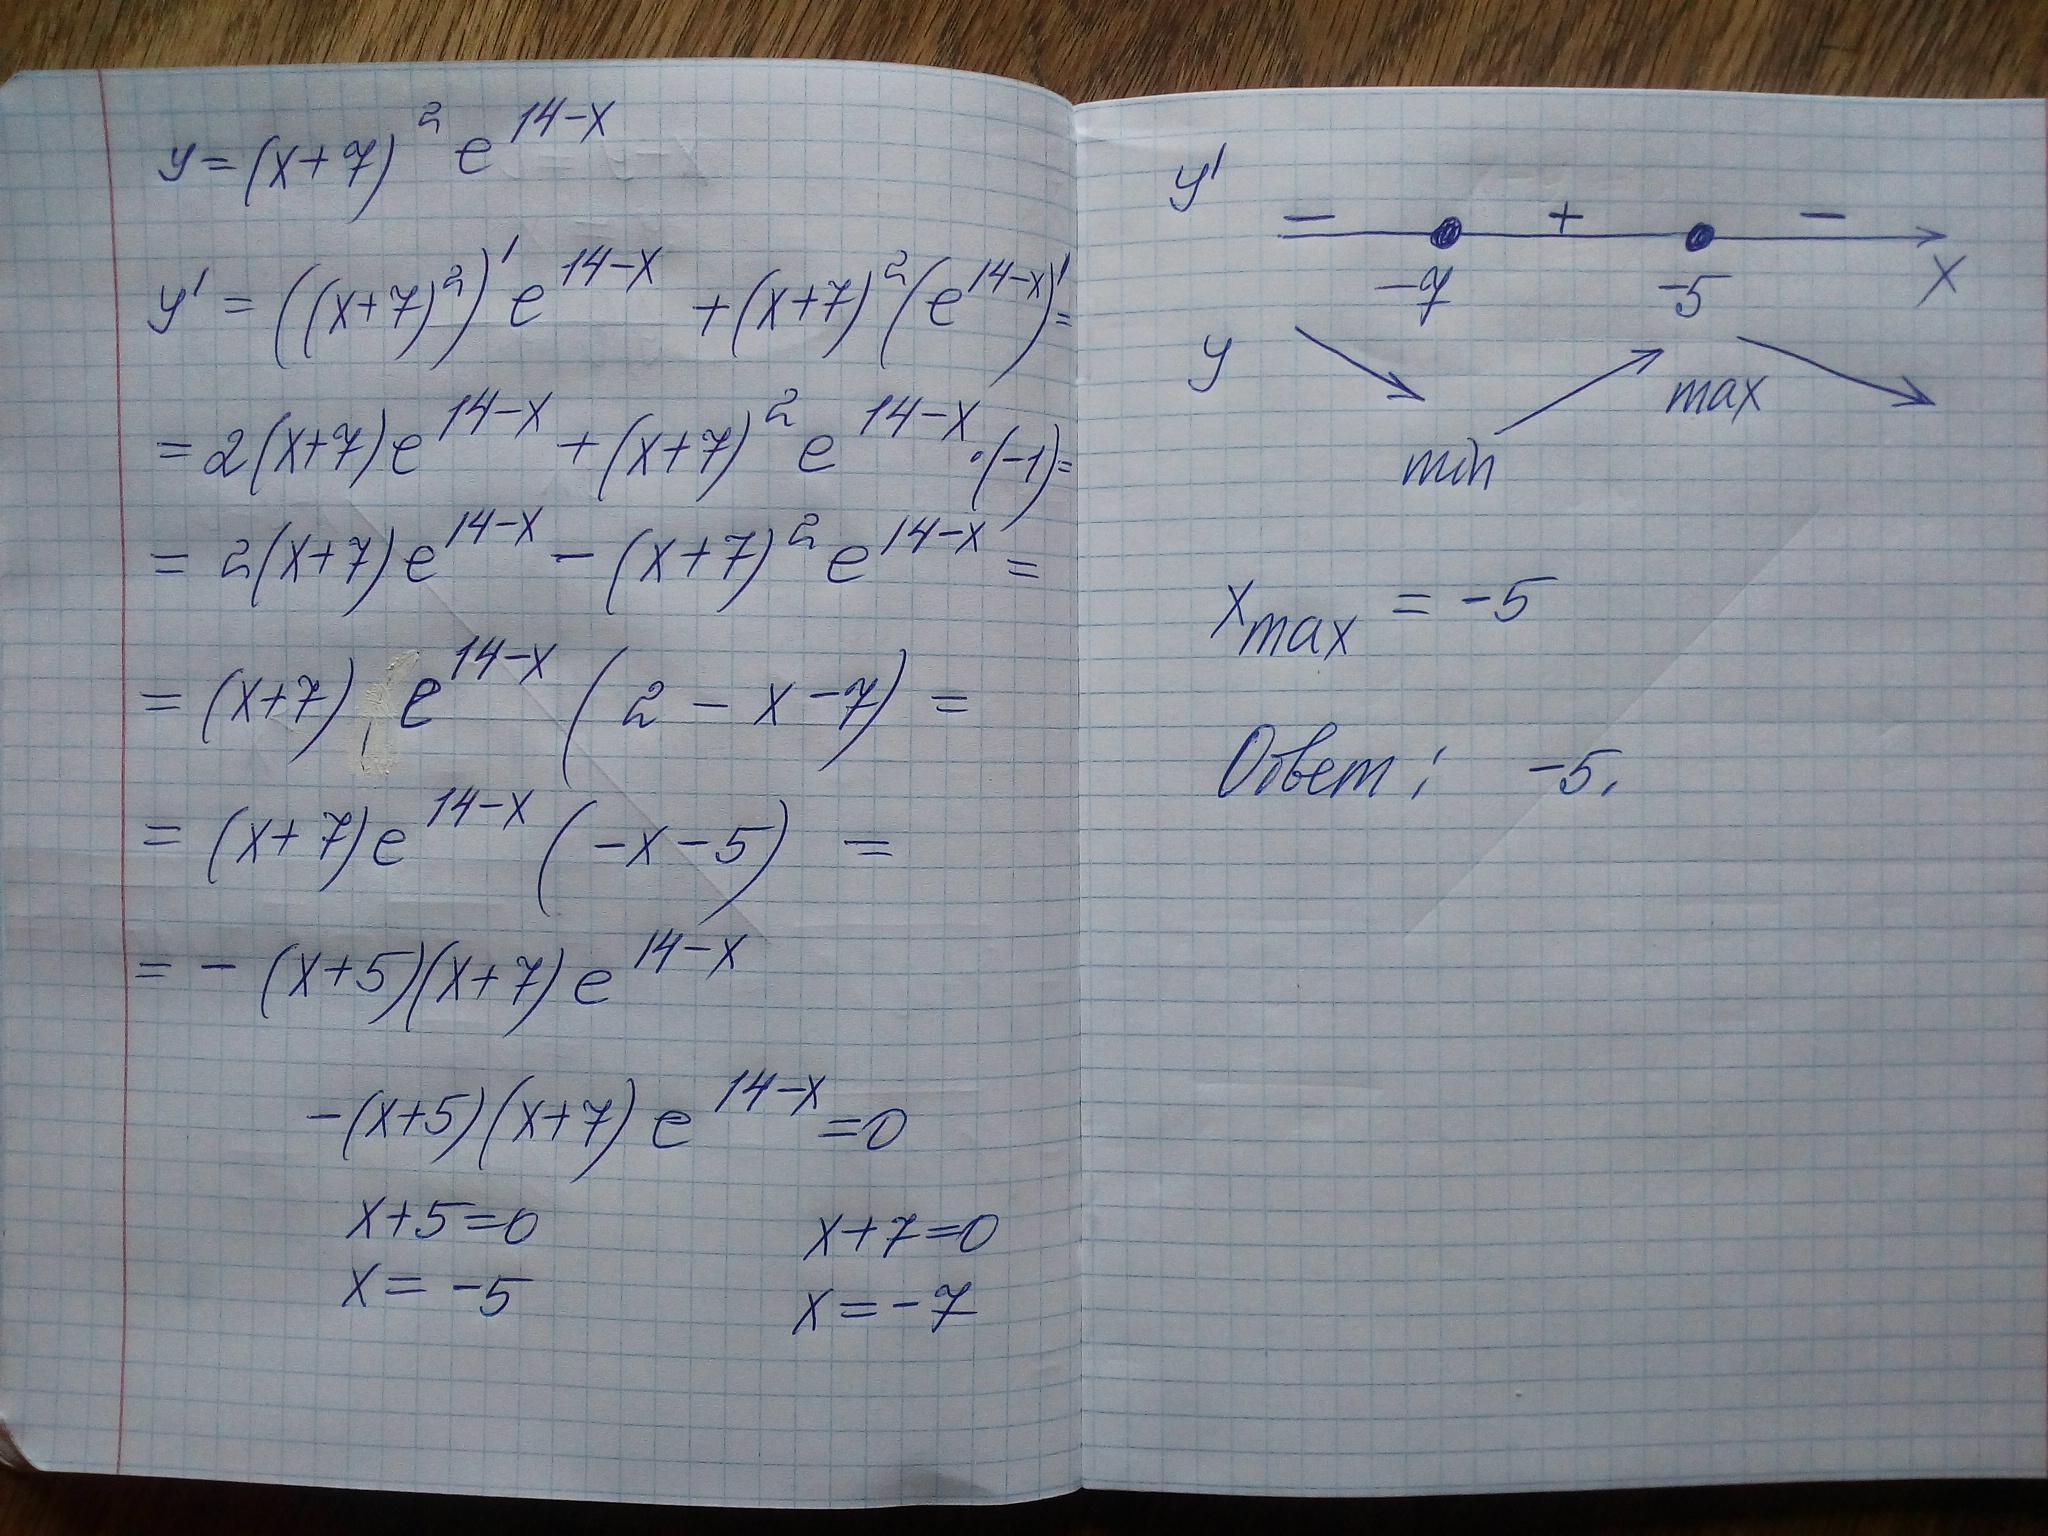 y = (x+7)² e^(14-x)
y' = ((x+7)²)' e^(14-x) + (x+7)² (e^(14-x))' =
= 2(x+7) e^(14-x) + (x+7)² e^(14-x) · (-1) =
= 2(x+7) e^(14-x) - (x+7)² e^(14-x) =
= (x+7) e^(14-x) (2 - x - 7) =
= (x+7) e^(14-x) (-x - 5) =
= - (x+5)(x+7) e^(14-x)
-(x+5)(x+7) e^(14-x) = 0
x+5=0 x+7=0
x = -5 x = -7
y' - + -
-7 -5 x
y max
min
x max = -5
Ответ: -5.